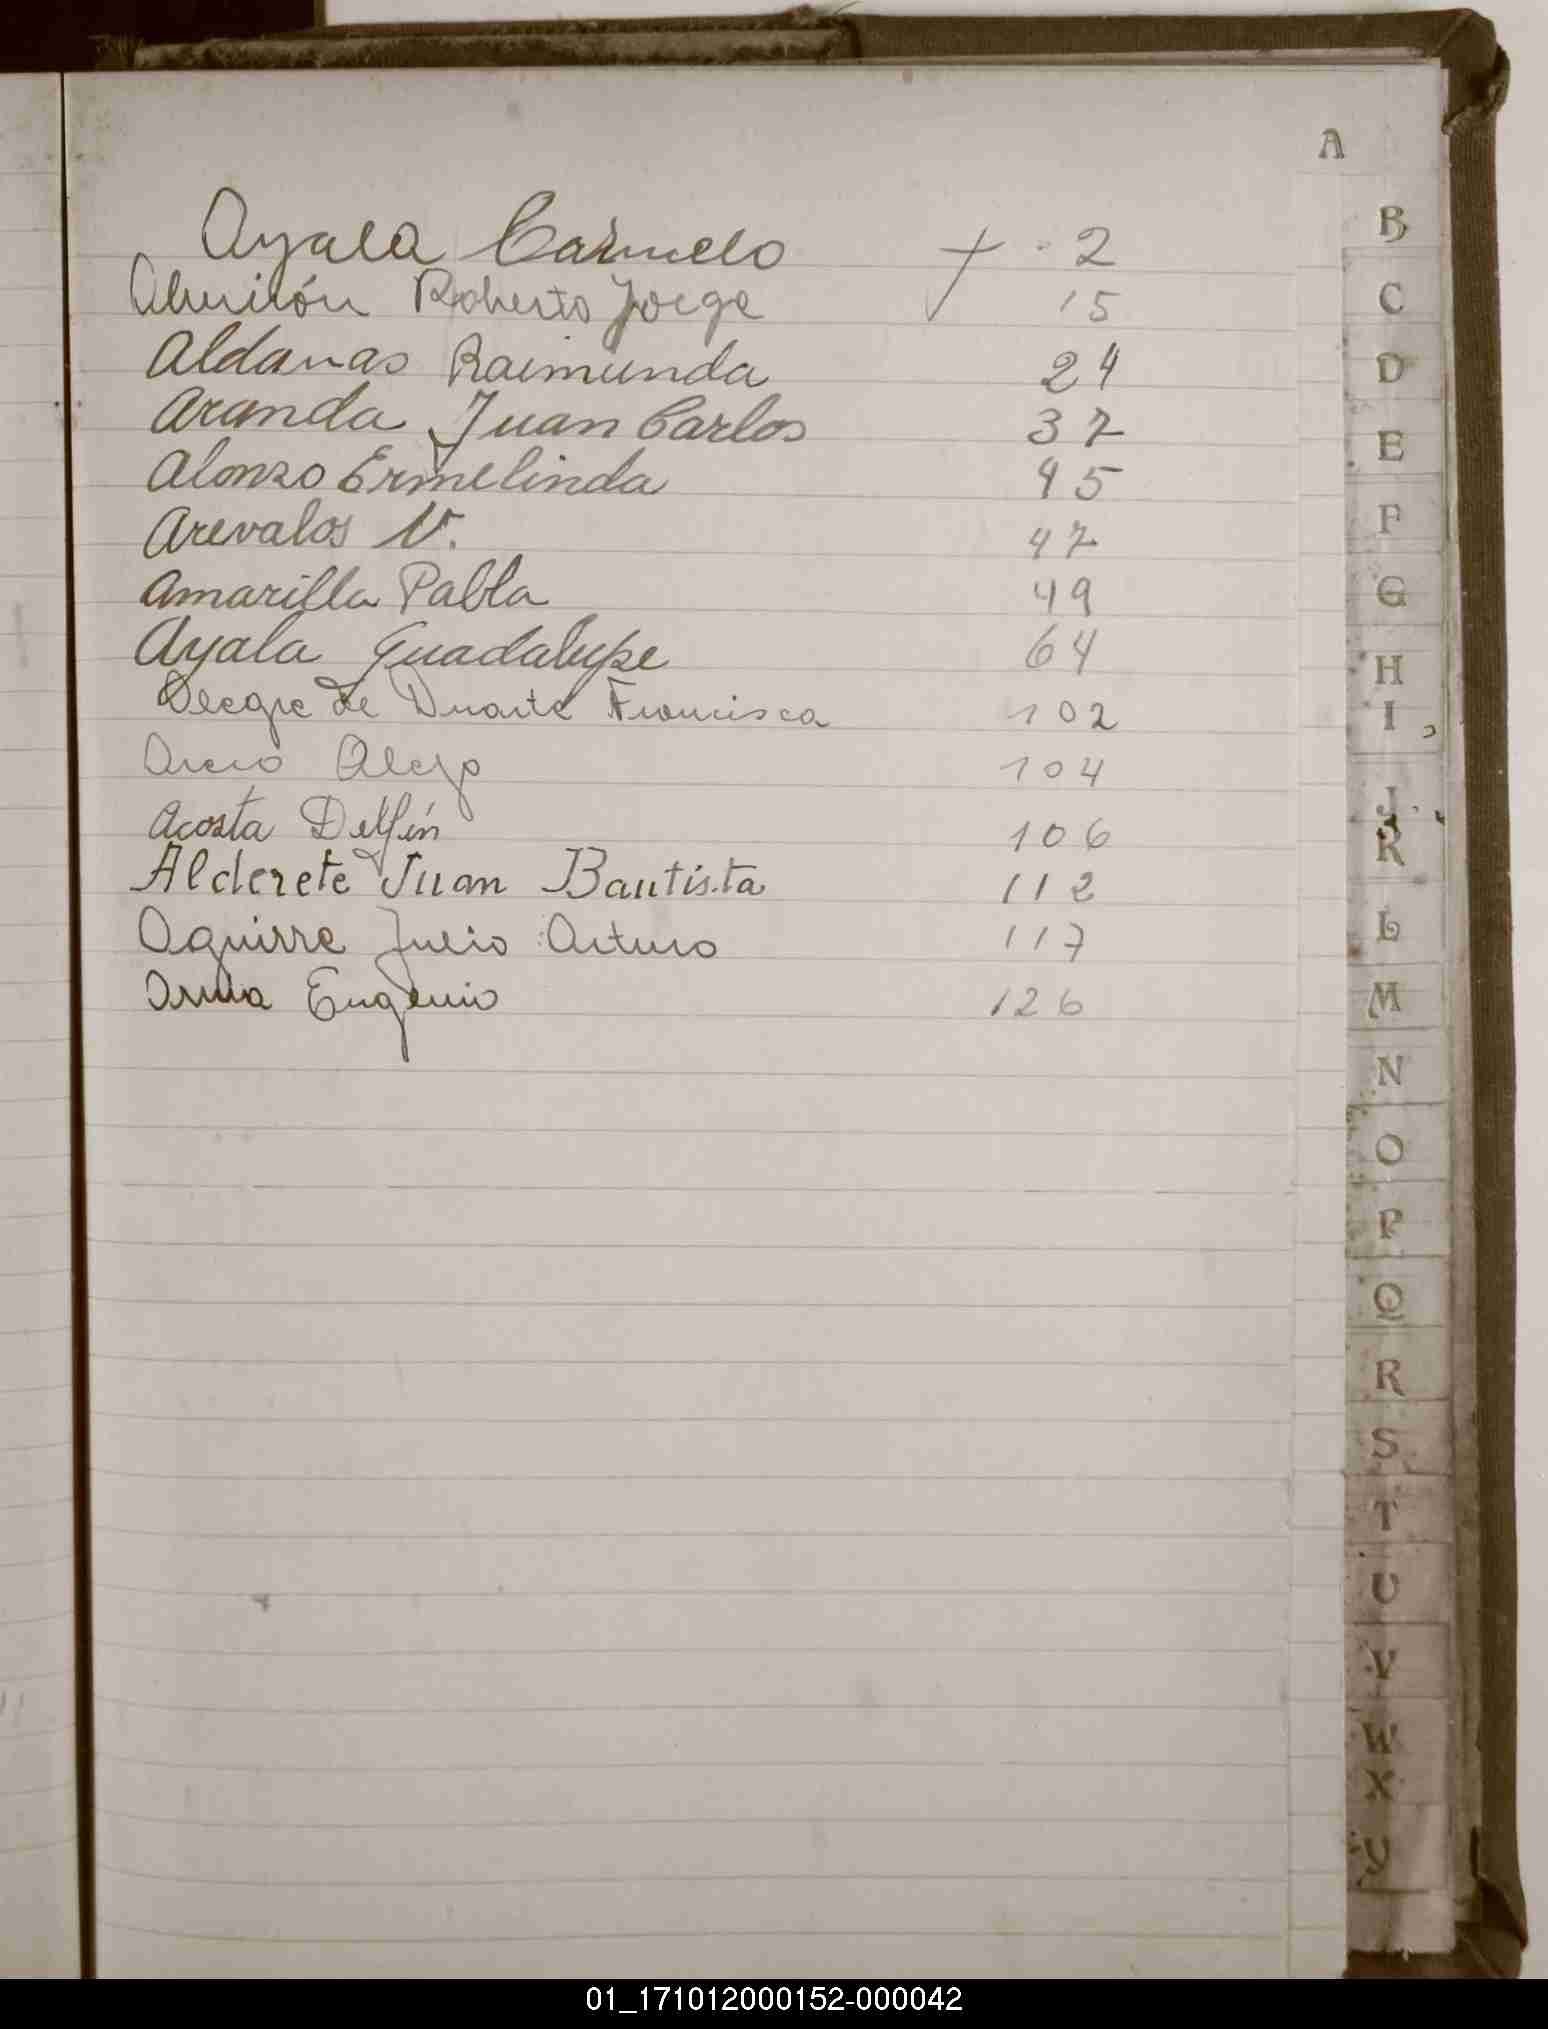 A
Ayala Carmelo + . 2
Almirón Roberto Jorge 15
Aldanas Raimunda 24
Aranda Juan Carlos 37
Alonzo Ermelinda 45
Arevalos V. 47
Amarilla Pabla 49
Ayala Guadalupe 64
Alegre de Duarte Francisca 102
Alejo 104
Acosta Delfín 106
Alderete Juan Bautista 112
Aguirre Julio Arturo 117
Eugenio 126
B
C
D
E
F
G
H
I
J
K
L
M
N
O
P
Q
R
S
T
U
V
W
X
Y
01_171012000152-000042